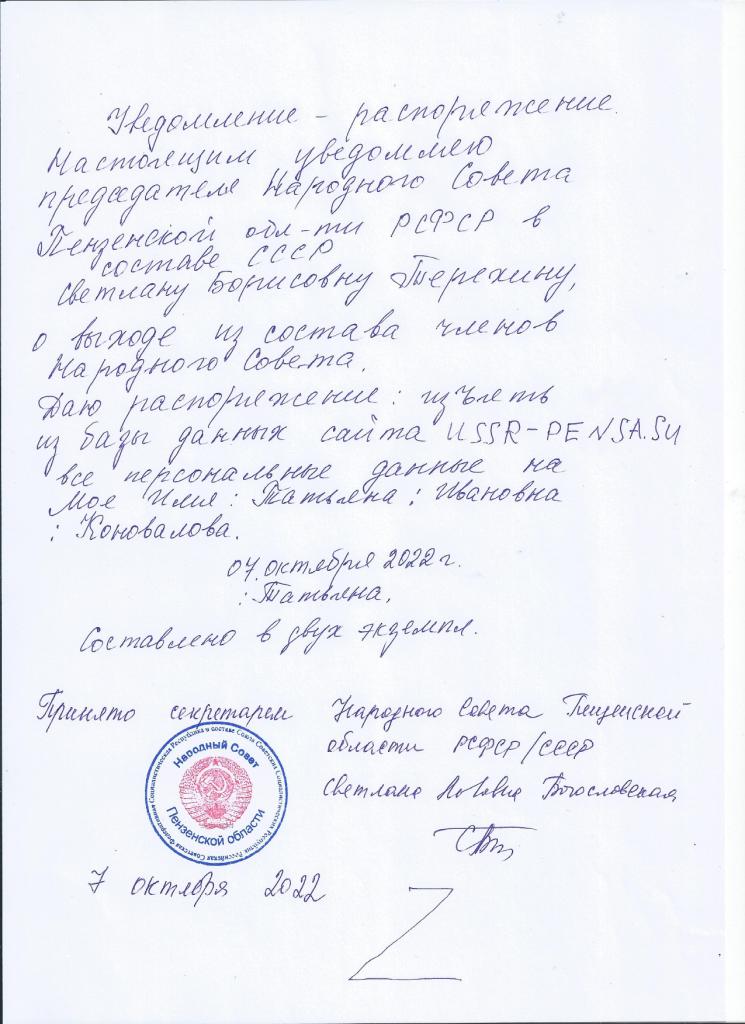 Уведомление – распоряжение.
Настоящим уведомляю
председателя Народного Совета
Пензенской обл-ти РСФСР в
составе СССР
Светлану Борисовну Терехину,
о выходе из состава членов
Народного Совета.
Даю распоряжение: изъять
из базы данных сайта USSR-PENSA.SU
все персональные данные на
Мое Имя: Татьяна : Ивановна
: Коновалова.
07.октября 2022 г.
: Татьяна.
Составлено в двух экземпл.
Принято секретарем Народного Совета Пензенской
области РСФСР/СССР
Светлана Богословская
Народный Совет
Пензенской области
7 октября 2022
Z